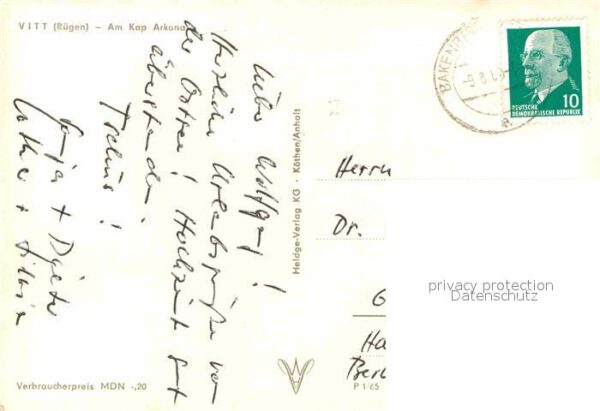 VITT (Rügen) – Am Kap Arkona
Lieber Wolfgang!
Herzliche Urlaubsgrüße von
der Ostsee! Hochzeit gut
überstanden.
Tschüs!
Sonja + Dieter
Lothar +
Heldge-Verlag KG · Köthen/Anhalt
BAKENBERG
DEUTSCHE
DEMOKRATISCHE REPUBLIK
10
Herrn
Dr.
G
Ha
Berl
privacy protection
Datenschutz
Verbraucherpreis MDN -,20
P 1/65